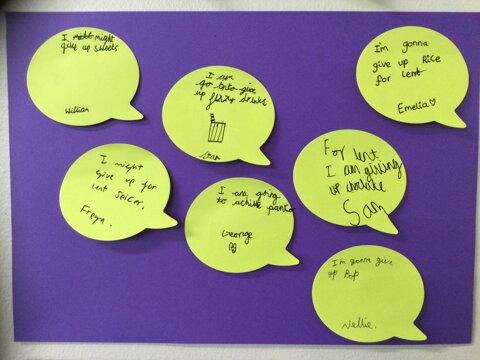 I might
give up sweets
William
I am
going to give
up fizzy drinks
I'm gonna
give up Rice
for lent
Emelia♡
I might
give up for
lent
Freya.
I am going
to achive
George
For lent
I am giving
up
Sam
I'm gonna give
up Pop
Nellie.